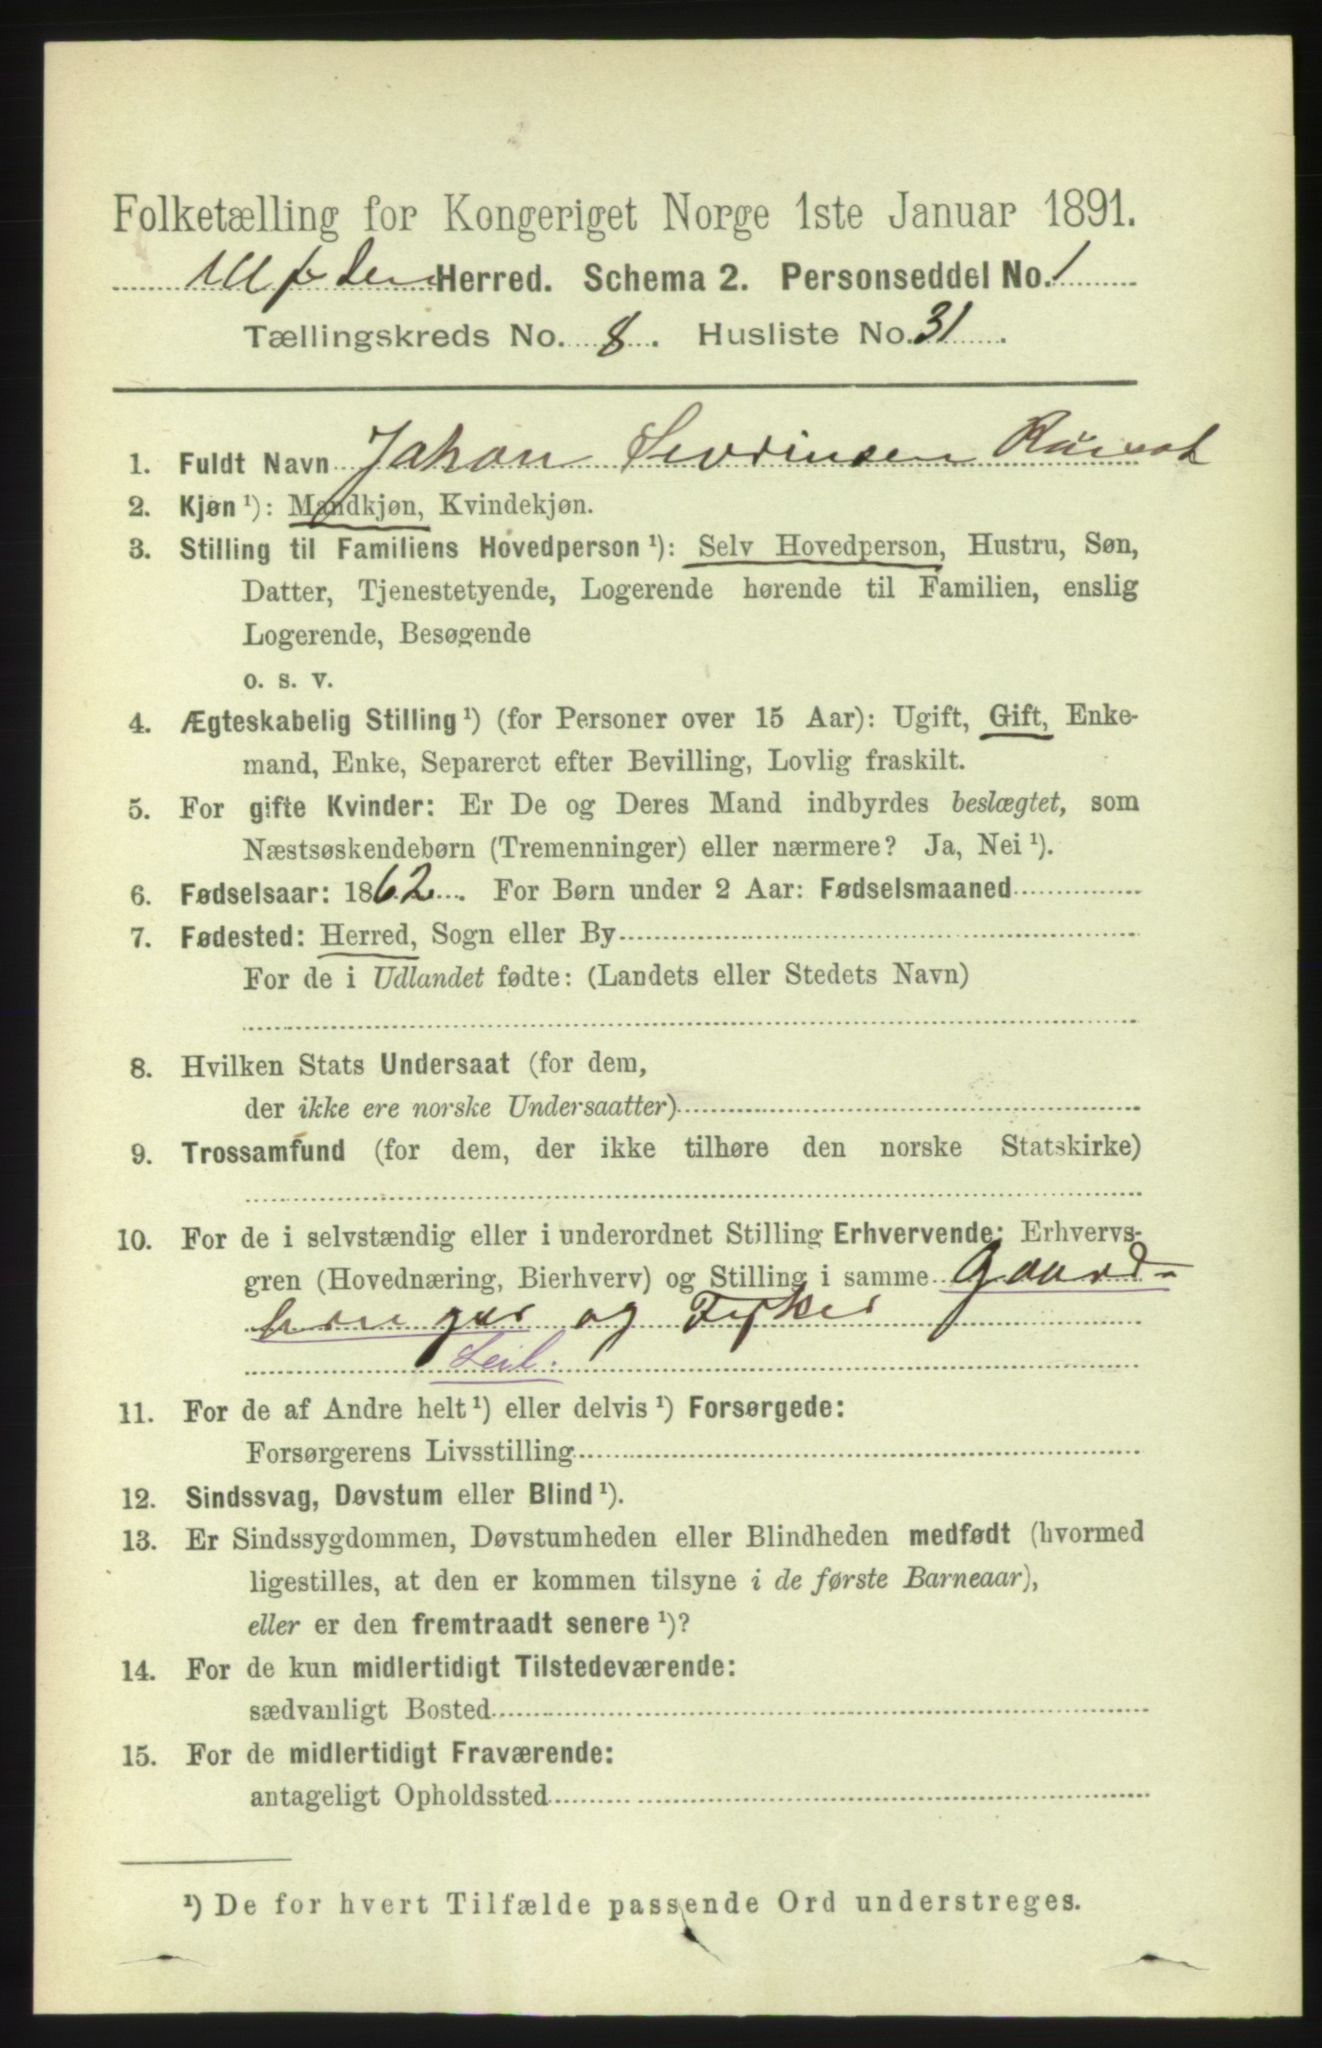 Folketælling for Kongeriget Norge 1ste Januar 1891.
Ulfsten Herred. Schema 2. Personseddel No. 1
Tællingskreds No. 8. Husliste No. 31.
1. Fuldt Navn Johan Sevrinsen
2. Kjøn ¹): Mandkjøn, Kvindekjøn.
3. Stilling til Familiens Hovedperson ¹): Selv Hovedperson, Hustru, Søn,
Datter, Tjenestetyende, Logerende hørende til Familien, enslig
Logerende, Besøgende
o. s. v.
4. Ægteskabelig Stilling ¹) (for Personer over 15 Aar): Ugift, Gift, Enke-
mand, Enke, Separeret efter Bevilling, Lovlig fraskilt.
5. For gifte Kvinder: Er De og Deres Mand indbyrdes beslægtet, som
Næstsøskendebørn (Tremenninger) eller nærmere? Ja, Nei ¹).
6. Fødselsaar: 1862. For Børn under 2 Aar: Fødselsmaaned
7. Fødested: Herred, Sogn eller By
For de i Udlandet fødte: (Landets eller Stedets Navn)
8. Hvilken Stats Undersaat (for dem,
der ikke ere norske Undersaatter)
9. Trossamfund (for dem, der ikke tilhøre den norske Statskirke)
10. For de i selvstændig eller i underordnet Stilling Erhvervende: Erhvervs-
gren (Hovednæring, Bierhverv) og Stilling i samme Gaard-
bruger og Fisker
Leil.
11. For de af Andre helt ¹) eller delvis ¹) Forsørgede:
Forsørgerens Livsstilling
12. Sindssvag, Døvstum eller Blind ¹).
13. Er Sindssygdommen, Døvstumheden eller Blindheden medfødt (hvormed
ligestilles, at den er kommen tilsyne i de første Barneaar),
eller er den fremtraadt senere ¹)?
14. For de kun midlertidigt Tilstedeværende:
sædvanligt Bosted
15. For de midlertidigt Fraværende:
antageligt Opholdssted
¹) De for hvert Tilfælde passende Ord understreges.